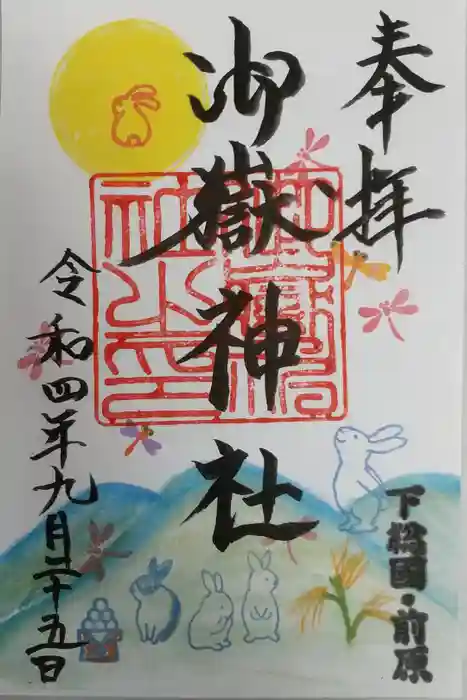 奉拝
下総國・前原
御嶽神社
令和四年九月二十五日